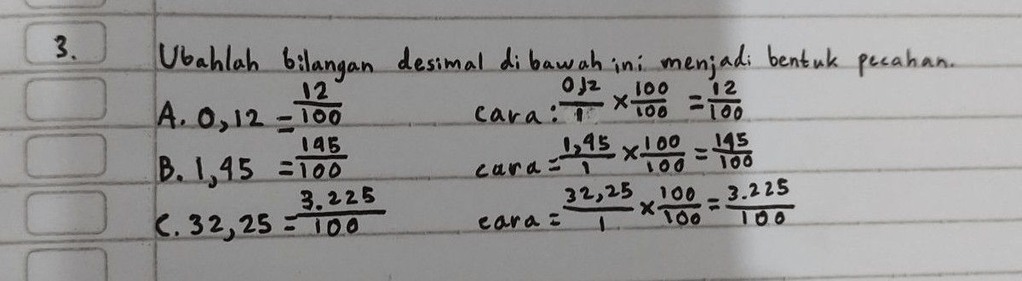 3. Ubahlah bilangan desimal di bawah ini menjadi bentuk pecahan.
A. 0,12 = 12/100 cara: 0,12/1 × 100/100 = 12/100
B. 1,45 = 145/100 cara = 1,45/1 × 100/100 = 145/100
C. 32,25 = 3.225/100 cara = 32,25/1 × 100/100 = 3.225/100